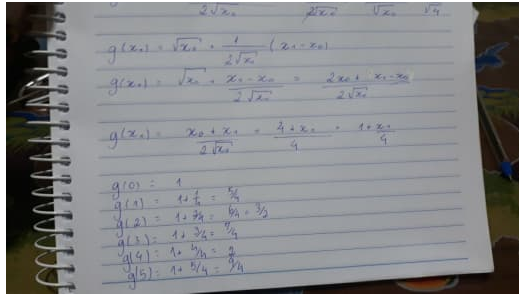 2√x₀ 2√x₀ √x₀ √4
g(x₀) = √x₀ + 1/(2√x₀) (x₁-x₀)
g(x₀) = √x₀ + (x₁-x₀)/(2√x₀) = (2x₀ + x₁-x₀)/(2√x₀)
g(x₀) = (x₀+x₁)/(2√x₀) = (4+x₁)/4 = 1+x₁/4
g(0) = 1
g(1) = 1+1/4 = 5/4
g(2) = 1+2/4 = 6/4 = 3/2
g(3) = 1+3/4 = 7/4
g(4) = 1+4/4 = 2
g(5) = 1+5/4 = 9/4